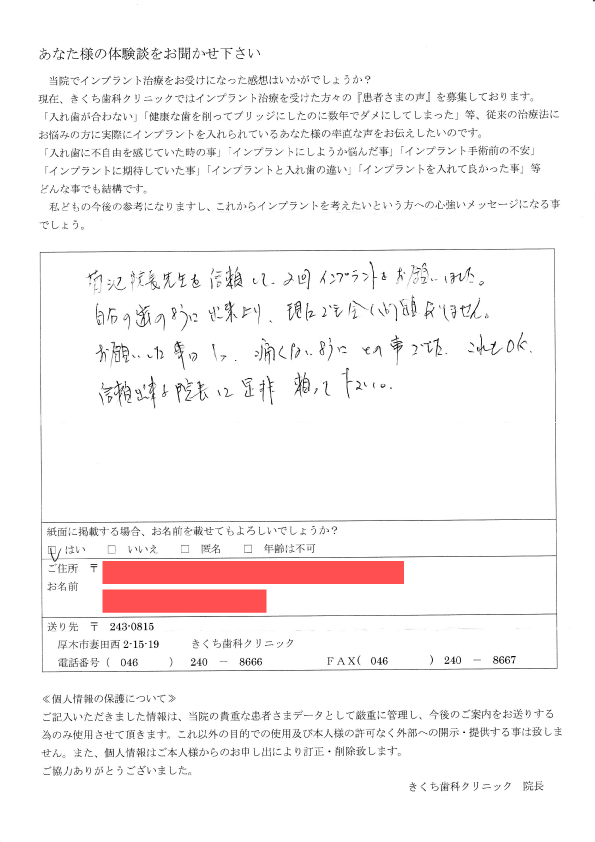 あなた様の体験談をお聞かせ下さい
当院でインプラント治療をお受けになった感想はいかがでしょうか?
現在、きくち歯科クリニックではインプラント治療を受けた方々の『患者さまの声』を募集しております。
「入れ歯が合わない」「健康な歯を削ってブリッジにしたのに数年でダメにしてしまった」等、従来の治療法に
お悩みの方に実際にインプラントを入れられているあなた様の率直な声をお伝えしたいのです。
「入れ歯に不自由を感じていた時の事」「インプラントにしようか悩んだ事」「インプラント手術前の不安」
「インプラントに期待していた事」「インプラントと入れ歯の違い」「インプラントを入れて良かった事」等
どんな事でも結構です。
私どもの今後の参考になりますし、これからインプラントを考えたいという方への心強いメッセージになる事
でしょう。
菊池院長先生を信頼して、2回インプラントをお願いしました。
自分の歯のように出来上り、現在でも全く問題ありません。
お願いした事は1つ、痛くないようにとの事でした。これもOK.
信頼出来る院長に是非頼って下さい。
紙面に掲載する場合、お名前を載せてもよろしいでしょうか?
☑ はい □ いいえ □ 匿名 □ 年齢は不可
ご住所 〒
お名前
送り先 〒 243-0815
厚木市妻田西 2-15-19 きくち歯科クリニック
電話番号 ( 046 ) 240 - 8666 FAX ( 046 ) 240 - 8667
≪個人情報の保護について≫
ご記入いただきました情報は、当院の貴重な患者さまデータとして厳重に管理し、今後のご案内をお送りする
為のみ使用させて頂きます。これ以外の目的での使用及び本人様の許可なく外部への開示・提供する事は致しま
せん。また、個人情報はご本人様からのお申し出により訂正・削除致します。
ご協力ありがとうございました。
きくち歯科クリニック 院長